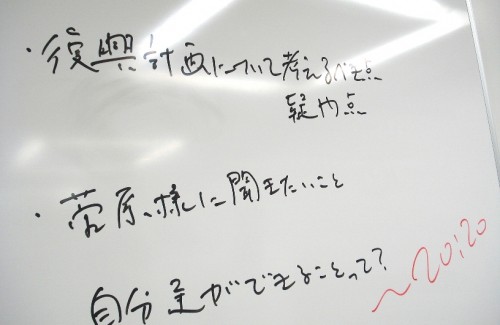 ・復興計画について考えるべき点
疑問点
・菅原様に聞きたいこと
自分達ができることって?
~20:20